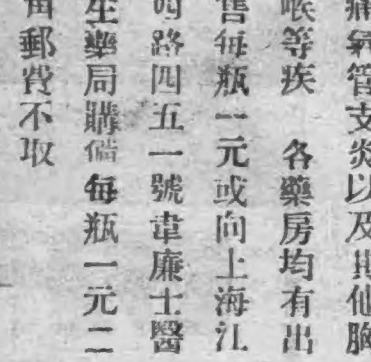 痛氣管支炎以及其他胸
喉等疾 各藥房均有出
售每瓶一元或向上海江
西路四五一號韋廉士醫
生藥局購備每瓶一元二
郵費不取